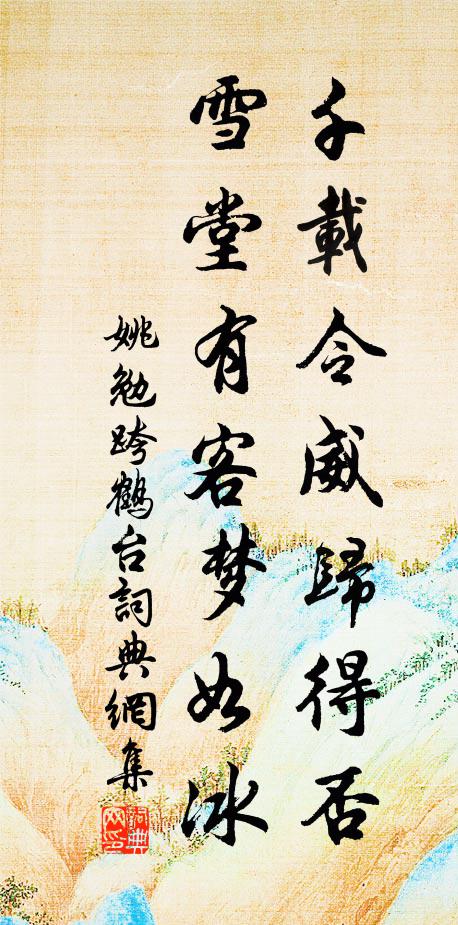 千載令威歸得否
雪堂有客梦如冰
姚勉跨鶴台詞典網集
詞典网印